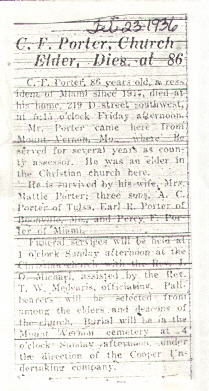 Feb 23 1936
C. F. Porter, Church
Elder, Dies, at 86
C. F. Porter, 86 years old, a res-
ident of Miami since 1917, died at
his home, 219 D street southwest,
at 5:15 o'clock Friday afternoon.
Mr. Porter came here from
Mount Vernon, Mo., where he
served for several years as coun-
ty assessor. He was an elder in
the Christian church here.
He is survived by his wife, Mrs.
Mattie Porter; three sons, A. C.
Porter of Tulsa, Earl R. Porter of
and Percy F. Por-
ter of Miami.
Funeral services will be held at
1 o'clock Sunday afternoon at the
church with the
O. Michael, assisted by the Rev.
T. W. Medearis, officiating. Pall-
bearers will be selected from
among the elders and deacons of
the church. Burial will be in the
Mount Vernon cemetery at 4
o'clock Sunday afternoon, under
the direction of the Cooper Un-
dertaking company.